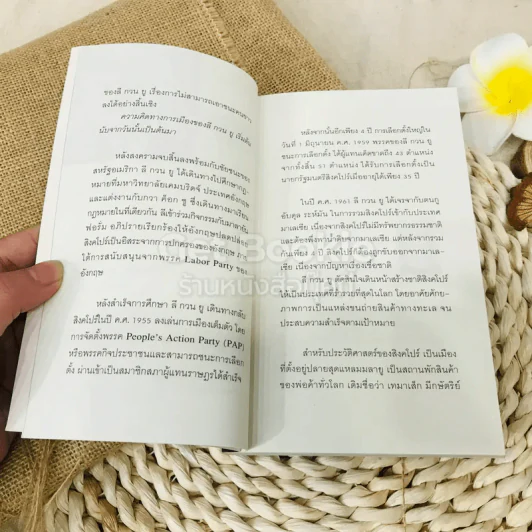 ของลี กวน ยู เรื่องการไม่สามารถเอาชนะคนขาว
ลงได้อย่างสิ้นเชิง
ความคิดทางการเมืองของลี กวน ยู เริ่มต้น
นับจากวันนั้นเป็นต้นมา
หลังสงครามจบสิ้นลงพร้อมกับชัยชนะของ
สหรัฐอเมริกา ลี กวน ยู ได้เดินทางไปศึกษากฎ-
หมายที่มหาวิทยาลัยเคมบริดจ์ ประเทศอังกฤษ
และแต่งงานกับกวา ค็อก ชู ซึ่งเดินทางมาเรียน
กฎหมายในที่เดียวกัน ลีเข้าร่วมกิจกรรมกับมาลายัน
ฟอรั่ม อภิปรายเรียกร้องให้อังกฤษปลดปล่อย
สิงคโปร์เป็นอิสระจากการปกครองของอังกฤษ
ได้การสนับสนุนจากพรรค Labor Party ของ
อังกฤษ
หลังสำเร็จการศึกษา ลี กวน ยู เดินทางกลับ
สิงคโปร์ในปี ค.ศ. 1955 ลงเล่นการเมืองเต็มตัว โดย
การจัดตั้งพรรค People's Action Party (PAP)
หรือพรรคกิจประชาชนและสามารถชนะการเลือก
ตั้ง ผ่านเข้าเป็นสมาชิกสภาผู้แทนราษฎรได้สำเร็จ
หลังจากนั้นอีกเพียง 4 ปี การเลือกตั้งมีใหญ่ใน
วันที่ 1 มิถุนายน ค.ศ. 1959 พรรคของลี กวน ยู
ชนะการเลือกตั้ง ได้ผู้แทนเด็ดขาดถึง 43 ตำแหน่ง
จากทั้งสิ้น 51 ตำแหน่ง ได้รับการเลือกตั้งเป็น
นายกรัฐมนตรีสิงคโปร์เมื่ออายุได้เพียง 35 ปี
ในปี ค.ศ. 1961 ลี กวน ยู ได้เจรจากับตนกู
อับดุล ระห์มัน ในการรวมสิงคโปร์เข้ากับประเทศ
มาเลเซีย เนื่องจากสิงคโปร์ไม่มีทรัพยากรธรรมชาติ
และต้องพึ่งพาน้ำดื่มจากมาเลเซีย แต่หลังจากรวม
กันเพียง 4 ปี สิงคโปร์ก็ต้องถูกขับออกจากมาเลเซีย
เนื่องจากปัญหาเรื่องเชื้อชาติ
ลี กวน ยู ตัดสินใจเดินหน้าสร้างชาติสิงคโปร์
ให้เป็นประเทศที่ร่ำรวยที่สุดในโลก โดยอาศัยศักย-
ภาพการเป็นแหล่งขนถ่ายสินค้าทางทะเล จน
ประสบความสำเร็จตามเป้าหมาย
สำหรับประวัติศาสตร์ของสิงคโปร์ เป็นเมือง
ที่ตั้งอยู่ปลายสุดแหลมมลายู เป็นสถานพักสินค้า
ของพ่อค้าทั่วโลก เดิมชื่อว่า เทมาเส็ก มีกษัตริย์
ร้านหนังสือ